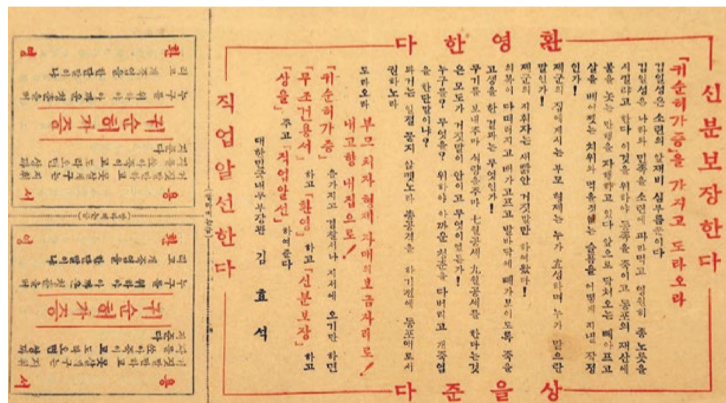 환영한다
신분보장한다
「귀순허가증을 가지고 도라오라
김일성은 소련의 앞재비 심부름꾼이다
김일성은 나라와 민족을 소련에 파라먹고 영원히 종노릇을
시킬랴고 한다 이것을 위하야 동족을 죽이고 동포의 재산에
불을 놓는 만행을 자행하고 있다 앞으로 닥쳐오는 뼈아프고
살을 베이는 치위와 먹을것없는 슬픔을 어떻게 지낼 작정
인가!
제군의 집에계시는 부모 형제는 누가 효심하며 누가 맡으란
말인가!
제군의 지휘자는 새빨안 거짓말만 하여왔다!
의복이 다떠러지고 배가고프고 발바닥에 뼈가보이도록 죽을
고생을 한 결과는 무엇인가!
무기를 보내주마 식량을주마 七월공세 九월공세를 한다는것
은 모도가 거짓말이 안이고 무엇이였든가!
누구를? 무엇을? 위하야 아까운 청춘을 다버리고 개죽엄
을 한단말이냐?
과거는 일절 묻지 않겟노라 총공격을 하기전에 동포애로서
권하노라
도라오라
부모 처자 형제 자매의 보금자리로!
내고향 내집으로!
「귀순허가증」을가지고 경찰서나 지서에 오기만 하면
「무조건용서」하고 「환영」하고 「신분보장」하고
「상을」주고 「직업알선」하여준다
대한민국내무부장관 김효석
직업알선한다
상을준다
환영
귀순허가증
용서
환영
귀순허가증
용서